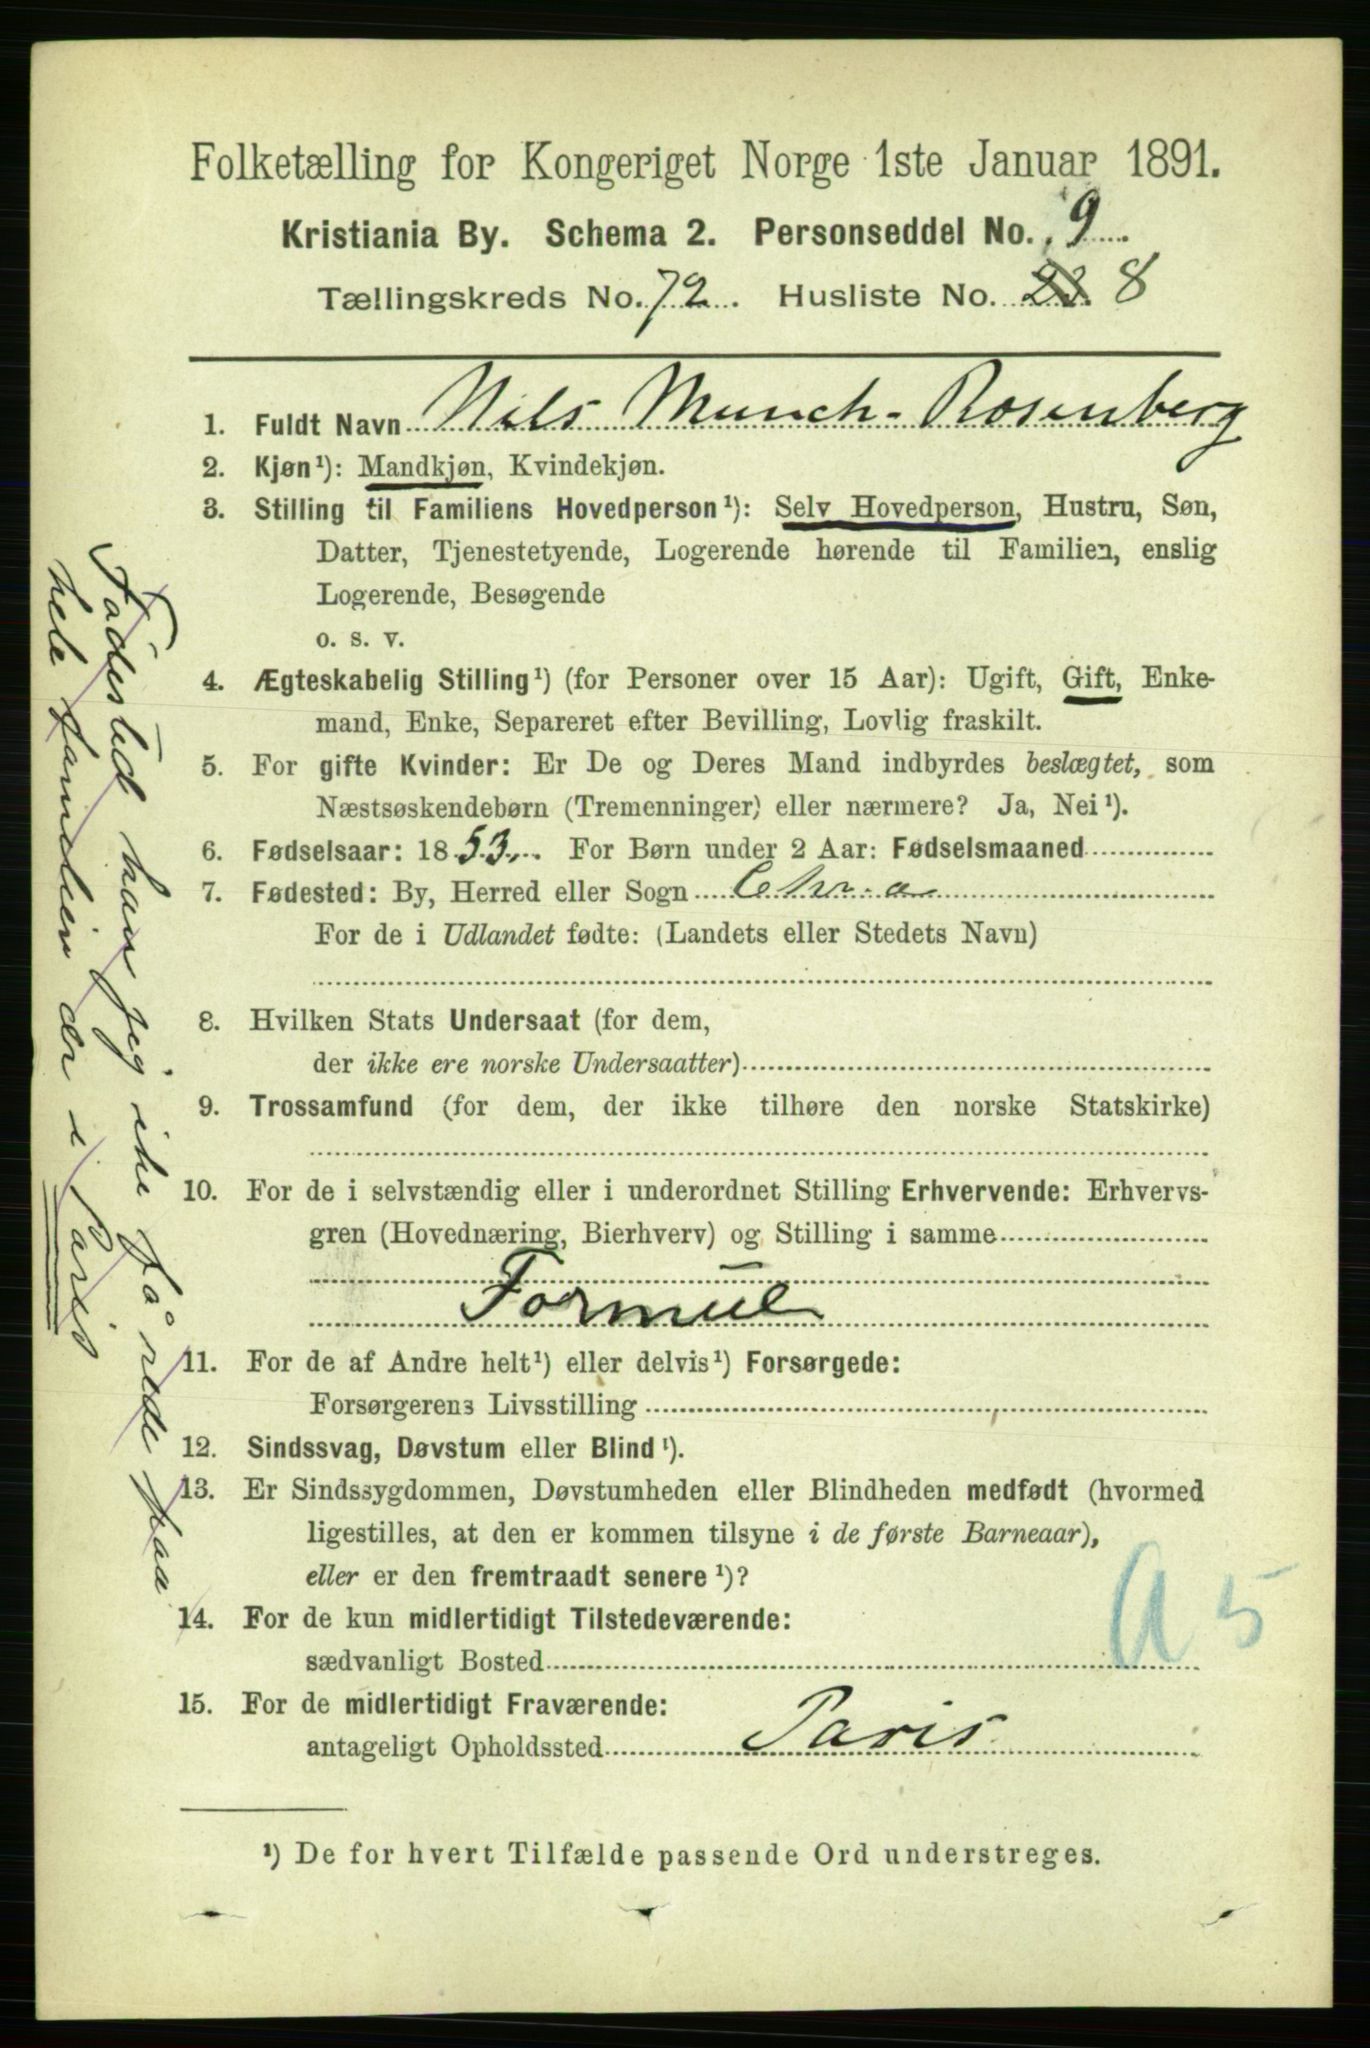 Folketælling for Kongeriget Norge 1ste Januar 1891.
Kristiania By. Schema 2. Personseddel No. 9
Tællingskreds No. 72. Husliste No. 23. 8
1. Fuldt Navn Nils Munch-Rosenberg
2. Kjøn¹): Mandkjøn, Kvindekjøn.
3. Stilling til Familiens Hovedperson¹): Selv Hovedperson, Hustru, Søn,
Datter, Tjenestetyende, Logerende hørende til Familien, enslig
Logerende, Besøgende
o. s. v.
4. Ægteskabelig Stilling¹) (for Personer over 15 Aar): Ugift, Gift, Enke-
mand, Enke, Separeret efter Bevilling, Lovlig fraskilt.
5. For gifte Kvinder: Er De og Deres Mand indbyrdes beslægtet, som
Næstsøskendebørn (Tremenninger) eller nærmere? Ja, Nei¹).
6. Fødselsaar: 1853. For Børn under 2 Aar: Fødselsmaaned
7. Fødested: By, Herred eller Sogn Chr.a
For de i Udlandet fødte: (Landets eller Stedets Navn)
8. Hvilken Stats Undersaat (for dem,
der ikke ere norske Undersaatter)
9. Trossamfund (for dem, der ikke tilhøre den norske Statskirke)
10. For de i selvstændig eller i underordnet Stilling Erhvervende: Erhvervs-
gren (Hovednæring, Bierhverv) og Stilling i samme
Formue
11. For de af Andre helt¹) eller delvis¹) Forsørgede:
Forsørgerens Livsstilling
12. Sindssvag, Døvstum eller Blind¹).
13. Er Sindssygdommen, Døvstumheden eller Blindheden medfødt (hvormed
ligestilles, at den er kommen tilsyne i de første Barneaar),
eller er den fremtraadt senere¹)?
14. For de kun midlertidigt Tilstedeværende:
sædvanligt Bosted
15. For de midlertidigt Fraværende:
antageligt Opholdssted Paris
¹) De for hvert Tilfælde passende Ord understreges.
Födested kan jeg ike få rede paa
hele familien er i Paris
A 5